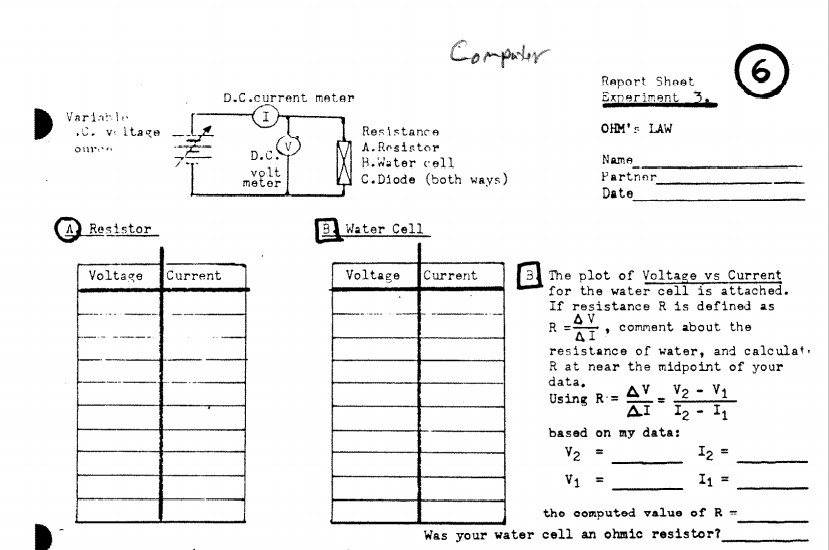 Computer
6
Report Sheet
Experiment 3.
OHM's LAW
Name
Partner
Date
D.C.current meter
I
Variable
.C. voltage
ource
V
D.C.
volt
meter
Resistance
A.Resistor
B.Water cell
C.Diode (both ways)
A. Resistor
Voltage Current
B. Water Cell
Voltage Current
B. The plot of Voltage vs Current
for the water cell is attached.
If resistance R is defined as
R = ΔV/ΔI , comment about the
resistance of water, and calculat
R at near the midpoint of your
data.
Using R = ΔV/ΔI = V2 - V1/I2 - I1
based on my data:
V2 = I2 =
V1 = I1 =
the computed value of R =
Was your water cell an ohmic resistor?